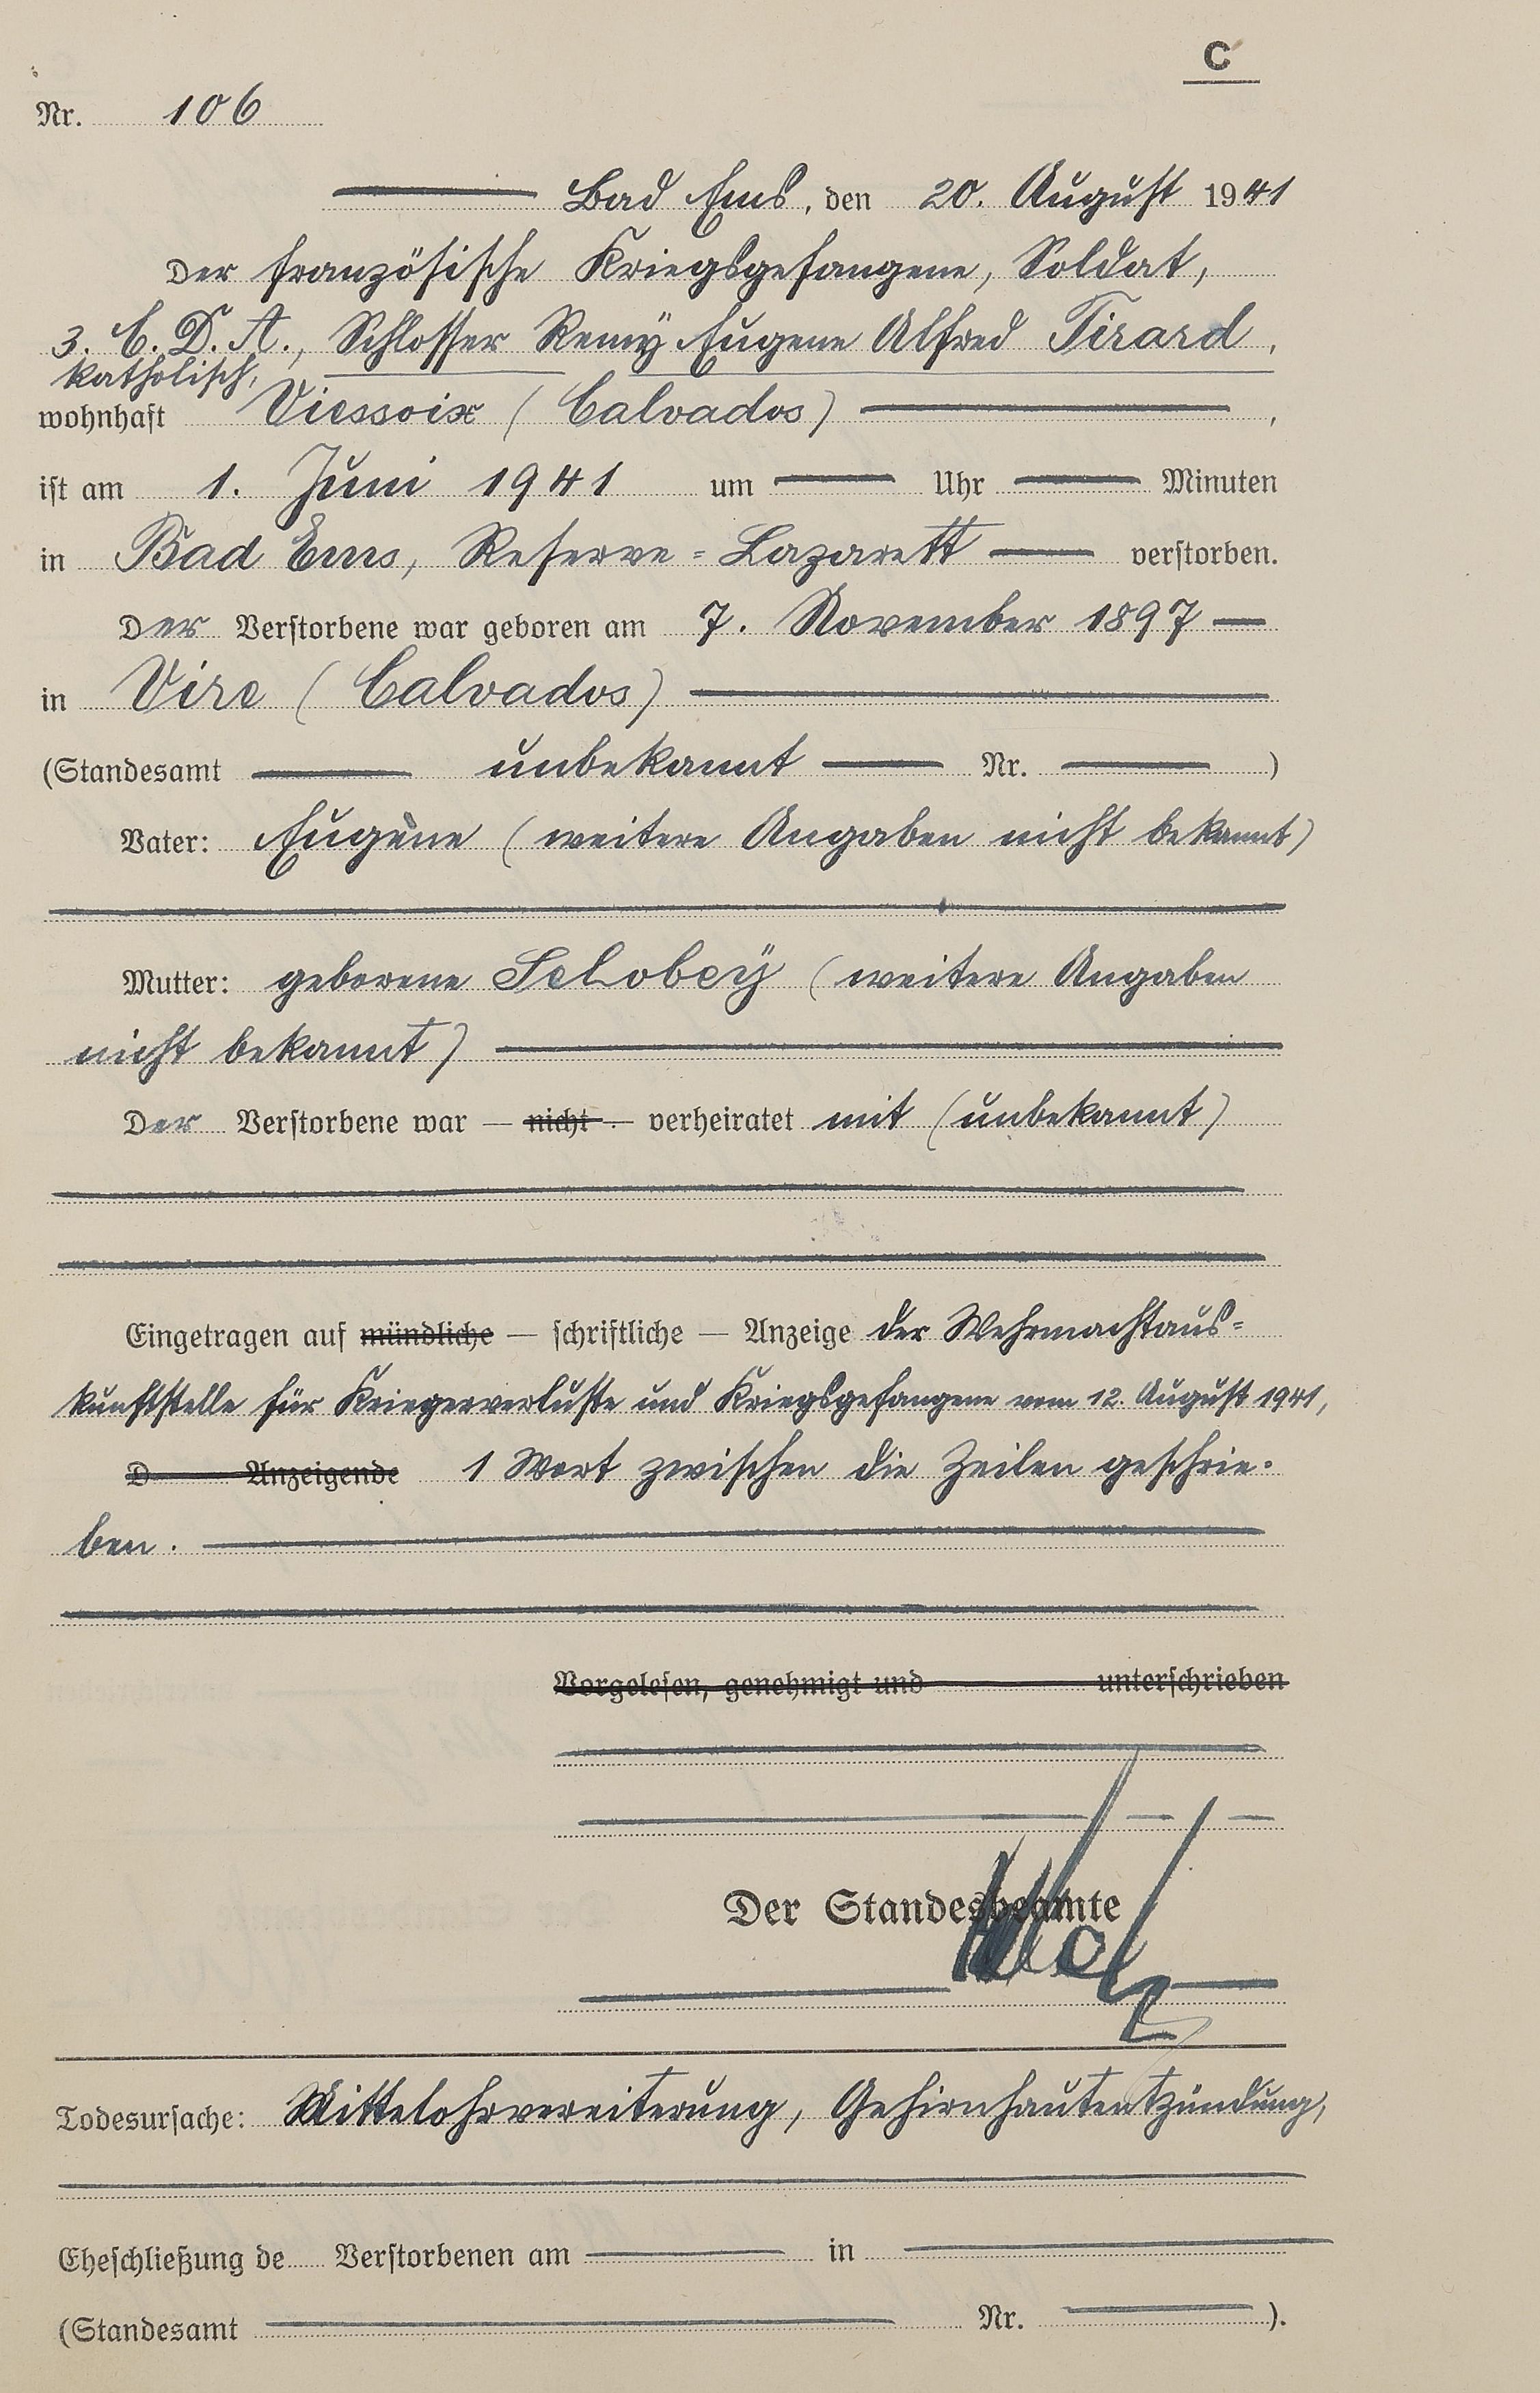 C
Nr. 106
Bad Ems, den 20. August 1941
Der französische Kriegsgefangene, Soldat,
3. C. D. A., Schlosser Remÿ Eugene Alfred Tirard,
katholisch,
wohnhaft Viessoix (Calvados),
ist am 1. Juni 1941 um Uhr Minuten
in Bad Ems, Reserve=Lazarett verstorben.
Der Verstorbene war geboren am 7. November 1897
in Vire (Calvados)
(Standesamt unbekannt Nr. )
Vater: Eugène (weitere Angaben nicht bekannt)
Mutter: geborene (weitere Angaben
nicht bekannt)
Der Verstorbene war — nicht — verheiratet mit (unbekannt)
Eingetragen auf mündliche — schriftliche — Anzeige der Wehrmachtaus=
kunftstelle für Kriegerverluste und Kriegsgefangene vom 12. August 1941,
D Anzeigende 1 Wort zwischen die Zeilen geschrie-
ben.
Vorgelesen, genehmigt und unterschrieben
Der Standesbeamte
Todesursache: Mittelohrvereiterung, Gehirnhautentzündung,
Eheschließung de Verstorbenen am in
(Standesamt Nr. ).